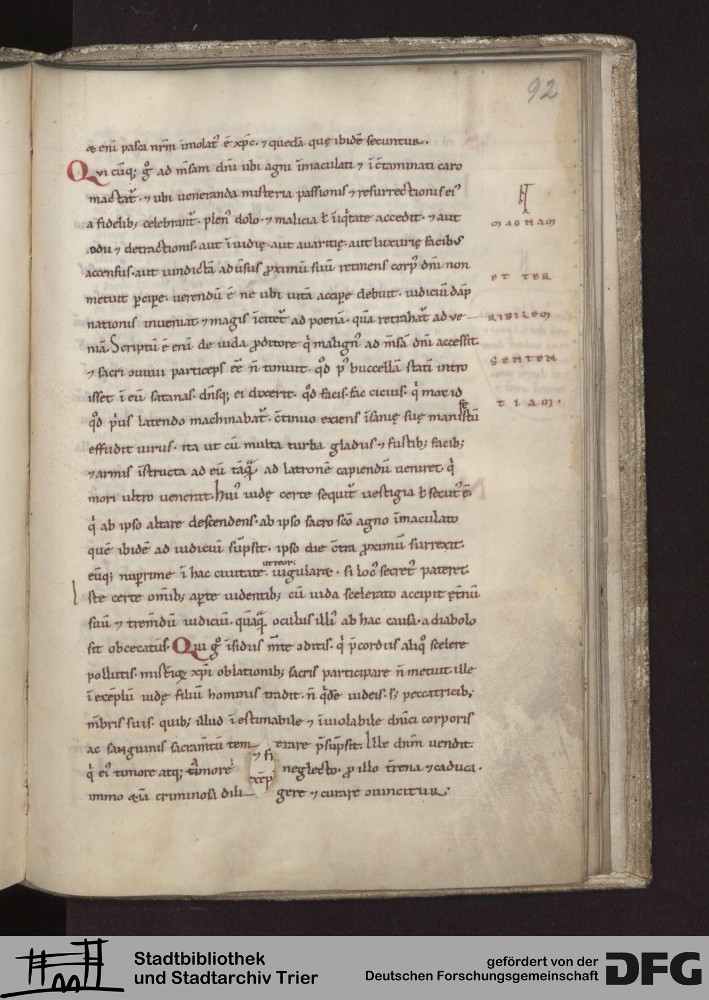 92
& eni pasca nrm imolat᾿ ē xp̄c. ⁊ quedā quę ibidē secuntur.
Qui cūq; g̊ ad m̄sam dni ubi agni īmaculati ⁊ ī c̄taminati caro
mactat᾿. ⁊ ubi ueneranda misteria passionis ⁊ resurrectionis ei᾿
a fidelib; celebrant᾿. plen᾿ dolo. ⁊ malicia ł iniq̇tate accedit. ⁊ aut
odii ⁊ detractionis. aut īuidię. aut auaritię. aut luxurię facib᾿
accensus. aut uindictā aduīsus ꝓximū suū retinens corp᾿ dni non
metuit ꝑciꝑe. uerendū ē ne ubi uitā acciꝑe debuit. iudiciū dāp
nationis inueniat. ⁊ magis īcitet᾿ ad poenā. quā retrahat᾿ ad ue
niā. Scriptū ē eni de iuda ꝓditore q̇ malign᾿ ad m̄sā dni accessit.
⁊ sacri particeps eē n̄ timuit. qd̊ p᾿ buccellā statī intro
isset ī eū satanas. dnsq; ei dixerit. qd̊ facis. fac cicius. q̇ mox id
qd̊ p̓us latendo machinabat᾿. c̄tinuo exiens īsanię suę manifestū
effudit uirus. ita ut cū multa turba gladiis ⁊ fustib; facib;
⁊ armis īstructa ad eū tāq̄. ad latronē capiendū ueniret. q̇
mori ultro uenerat. hui᾿ iudę certe sequit᾿ uestigia ł secut᾿ ē.
q̇ ab ipso altare descendens. ab ipso sacro sco agno īmaculato
quē ibidē ad iudiciū sūpsit. ipso die c̄tra ꝓximū surrexit.
eūq; in hac ciuitate ut reor. iugularet. si loc᾿ secret᾿ pateret.
Iste certe omīb; aꝑte uidentib; cū iuda scelerato accipit ętnū
suū ⁊ trem̄dū iudiciū. quāq̄ oculus illi᾿ ab hac causa. a diabolo
sit obcecatus. Qui g̊ īsidiis m̄te c̄ditis. q̇ p̄cordiis aliq̊ scelere
pollutis. mist̄iꝝ xpi oblationib; sacris participare n̄ metuit. ille
ī exēplū iudę filiū hominis tradit. n̄ q̇dē iudeis. s; peccatricib;
m̄bris suis. quib; illud īestimabile ⁊ īuiolabile dnici corporis
ac sanguinis sacram̄tū tem erare p̄sūpsit. Ille dnm uendit.
q̇ ei᾿ timore atq; amore ⁊ si neglecto. ꝓ illo t̄rena ⁊ caduca.
immo &iā criminosa dili gere ⁊ curare c̄uincitur.
MAGNAM
ET TER
RIBILEM
SENTEN
TIAM.
Stadtbibliothek
und Stadtarchiv Trier
gefördert von der
Deutschen Forschungsgemeinschaft
DFG